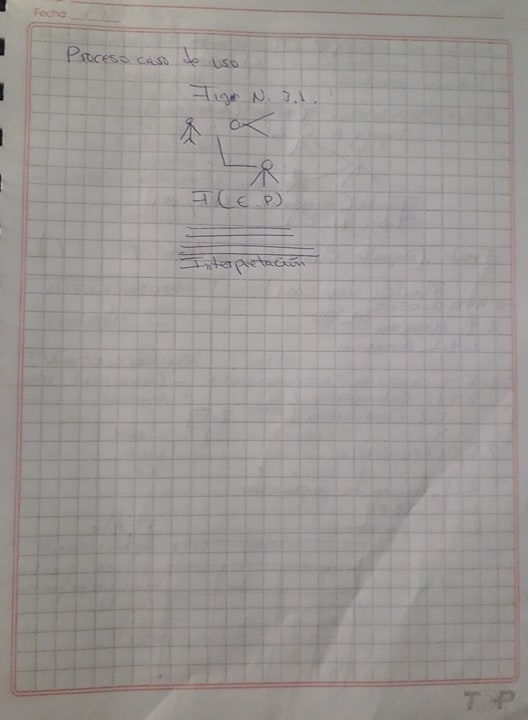 Fecha
Proceso caso de uso
Figur N. 3.1.
F ( E P )
Interpretación
TOP